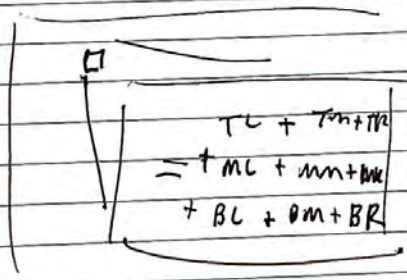 TL + Tm + TR
= + ML + mm + MR
+ BL + BM + BR